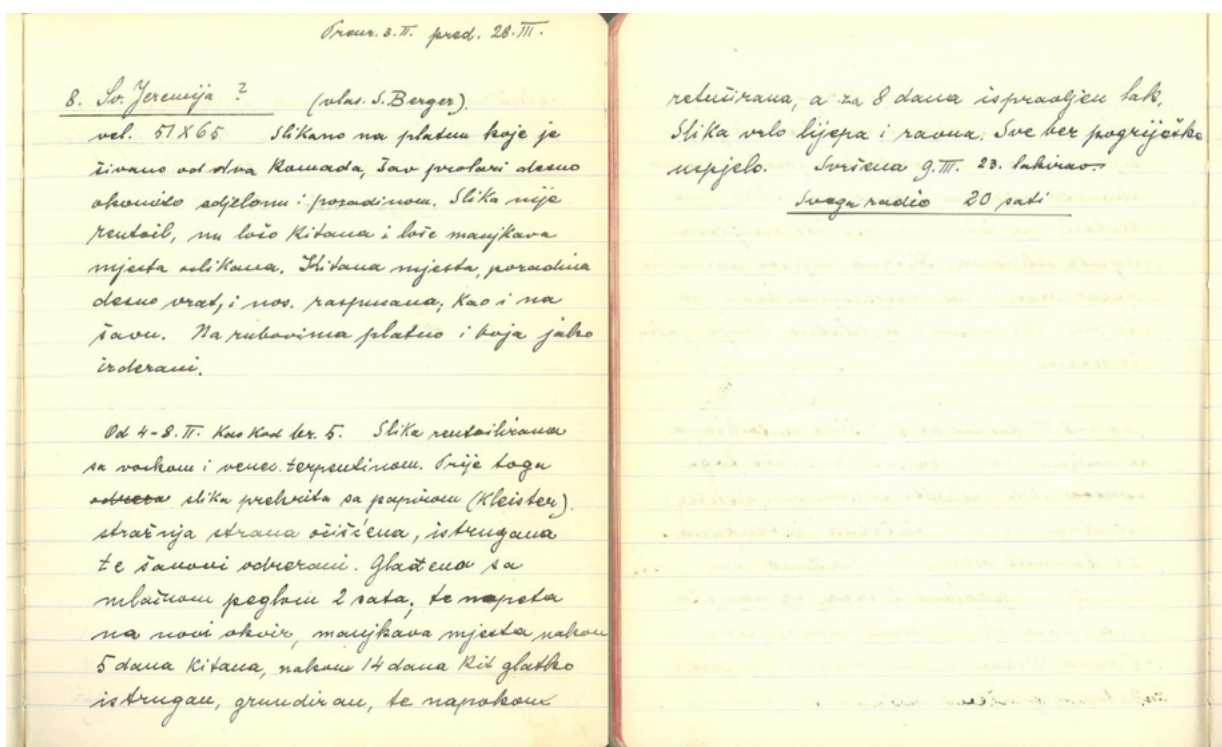 Preuz. 3. II. pred. 28. III.
8. Sv. Jeremija ? (vlas. S. Berger).
vel. 51 X 65 Slikano na platnu koje je
šivano od dva komada, šav prolazi desno
okomito odjelom i pozadinom. Slika nije
rentoil, nu loše kitana i loše manjkava
mjesta oslikana. Kitana mjesta, pozadina
desno vrat, i nos. raspucana, kao i na
šavu. Na rubovima platno i boja jako
izderani.
Od 4-8. II. Kao kod br. 5. Slika rentoilirana
sa voskom i venec. terpentinom. Prije toga
odreza slika prekrita sa papirom (Kleister).
stražnja strana očišćena, istrugana
te šavovi odrezani. Glažena sa
mlačnom peglom 2 sata, te napeta
na novi okvir, manjkava mjesta nakon
5 dana kitana, nakon 14 dana kit glatko
istrugan, grundiran, te napokon
retuširana, a za 8 dana ispravljen lak,
Slika vrlo lijepa i ravna. Sve bez pogriješke
uspjelo. Svršena 9. III. 23. lakirao.
Svega radio 20 sati